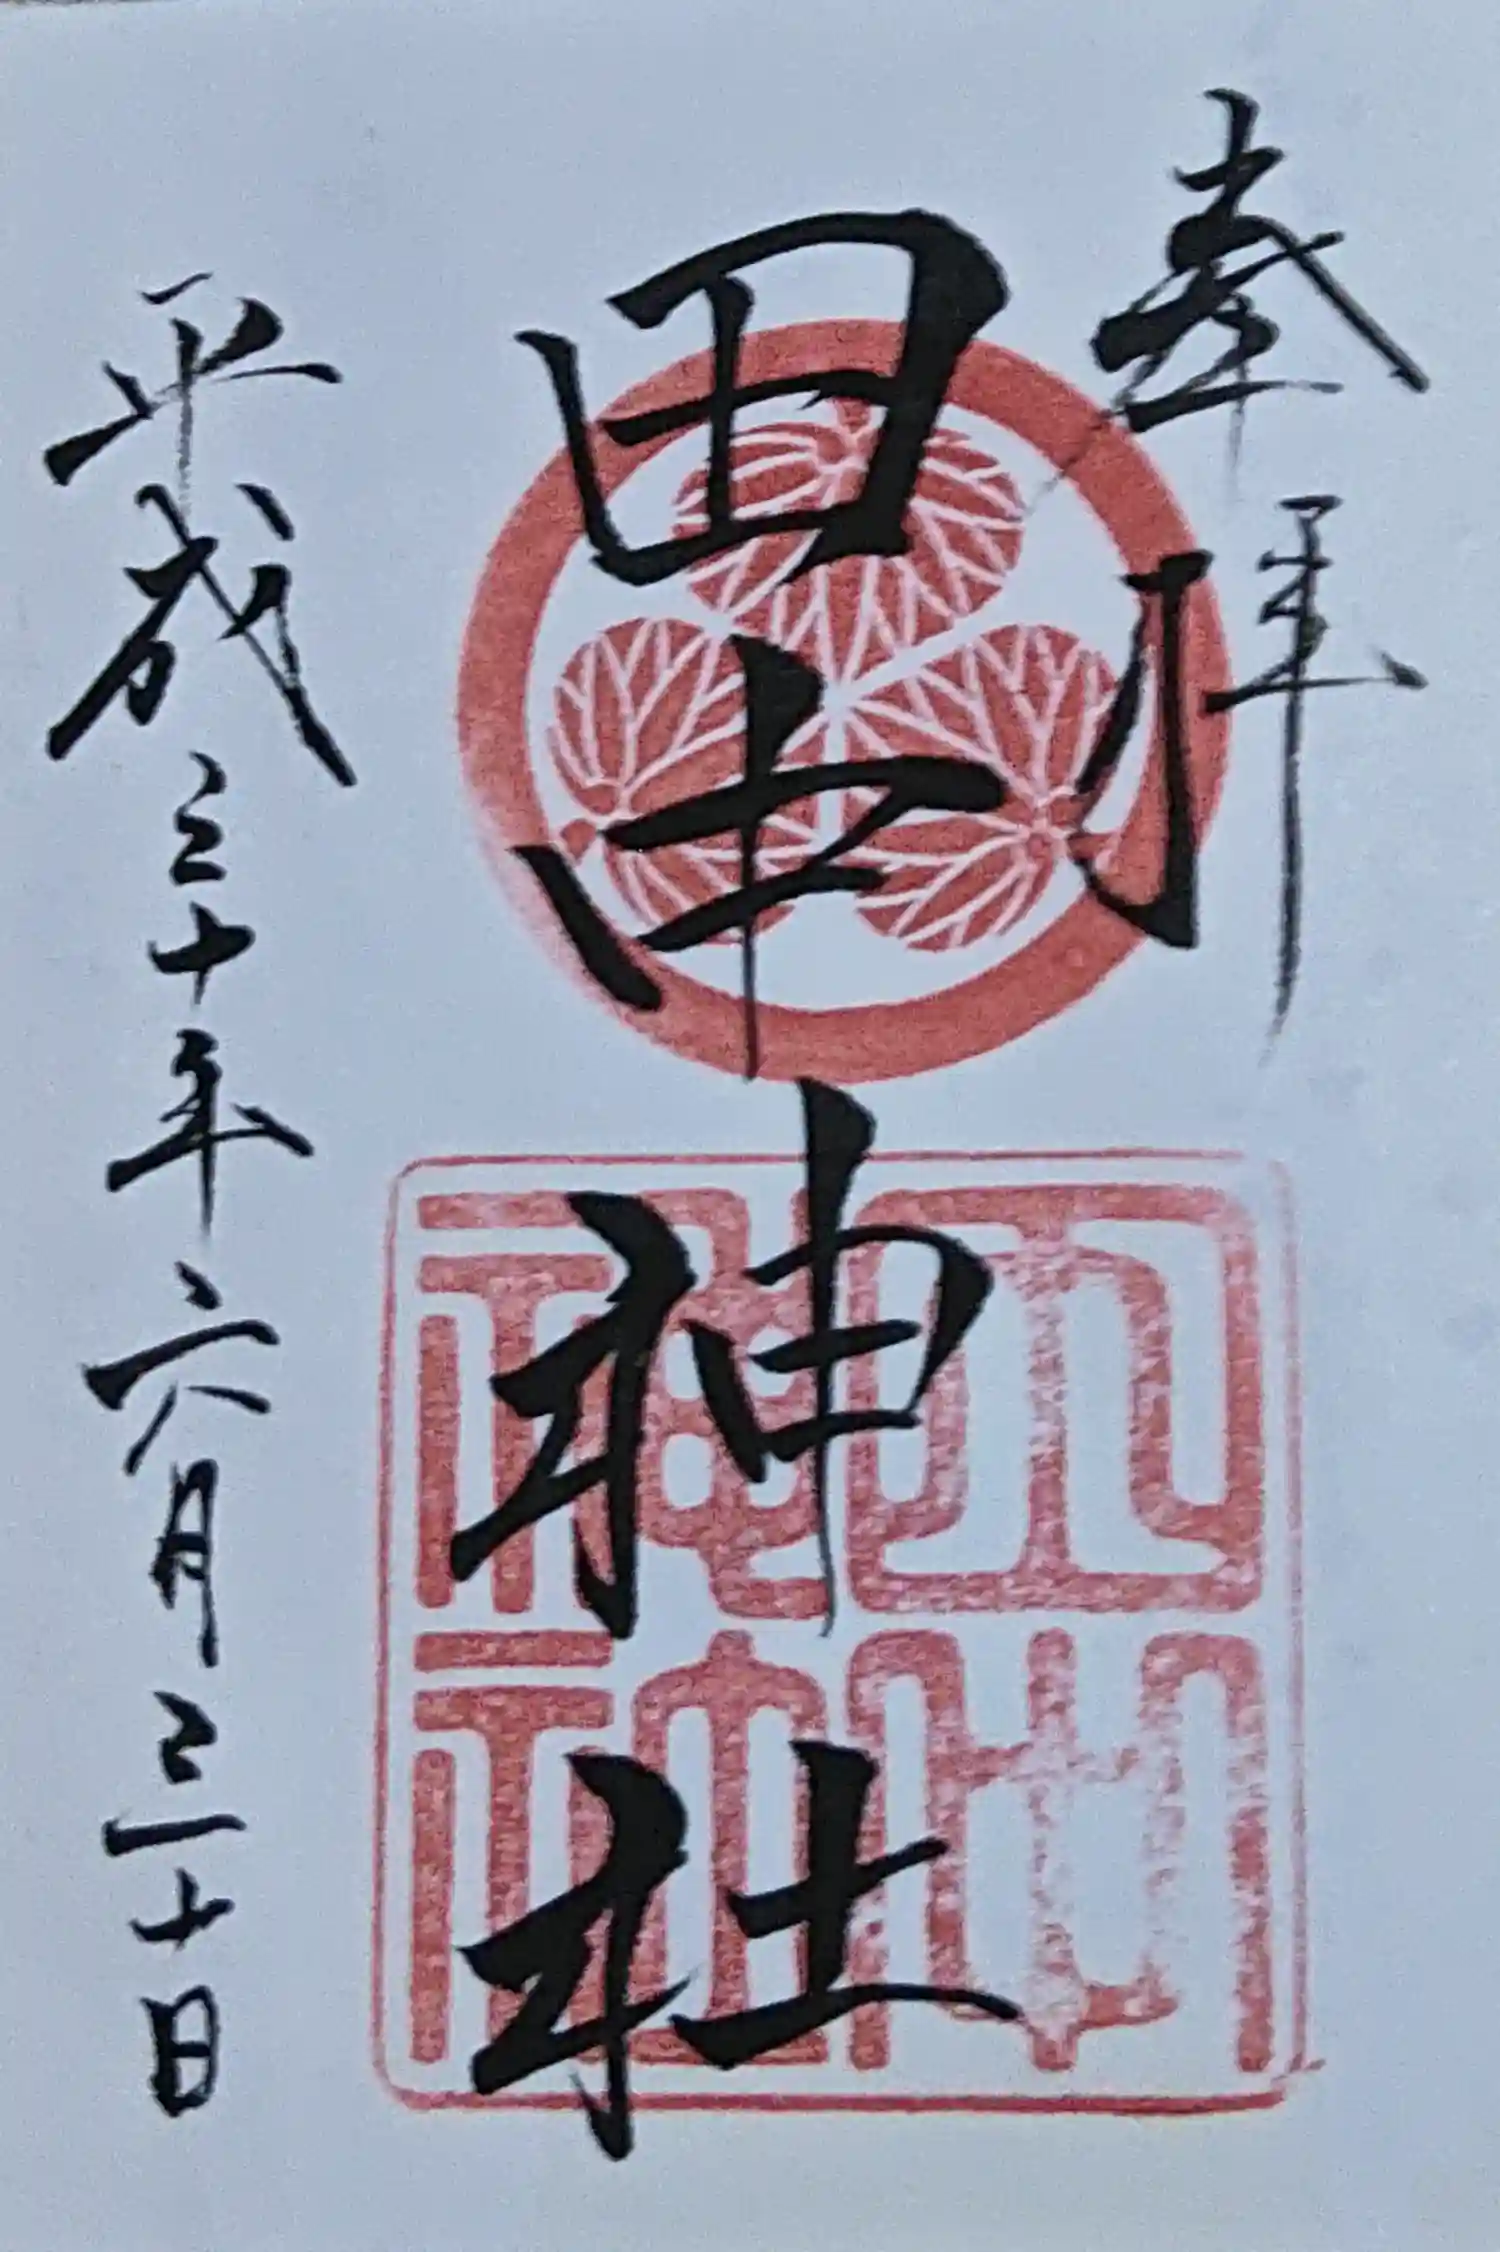 奉拝
田中神社
平成三十年六月三十日